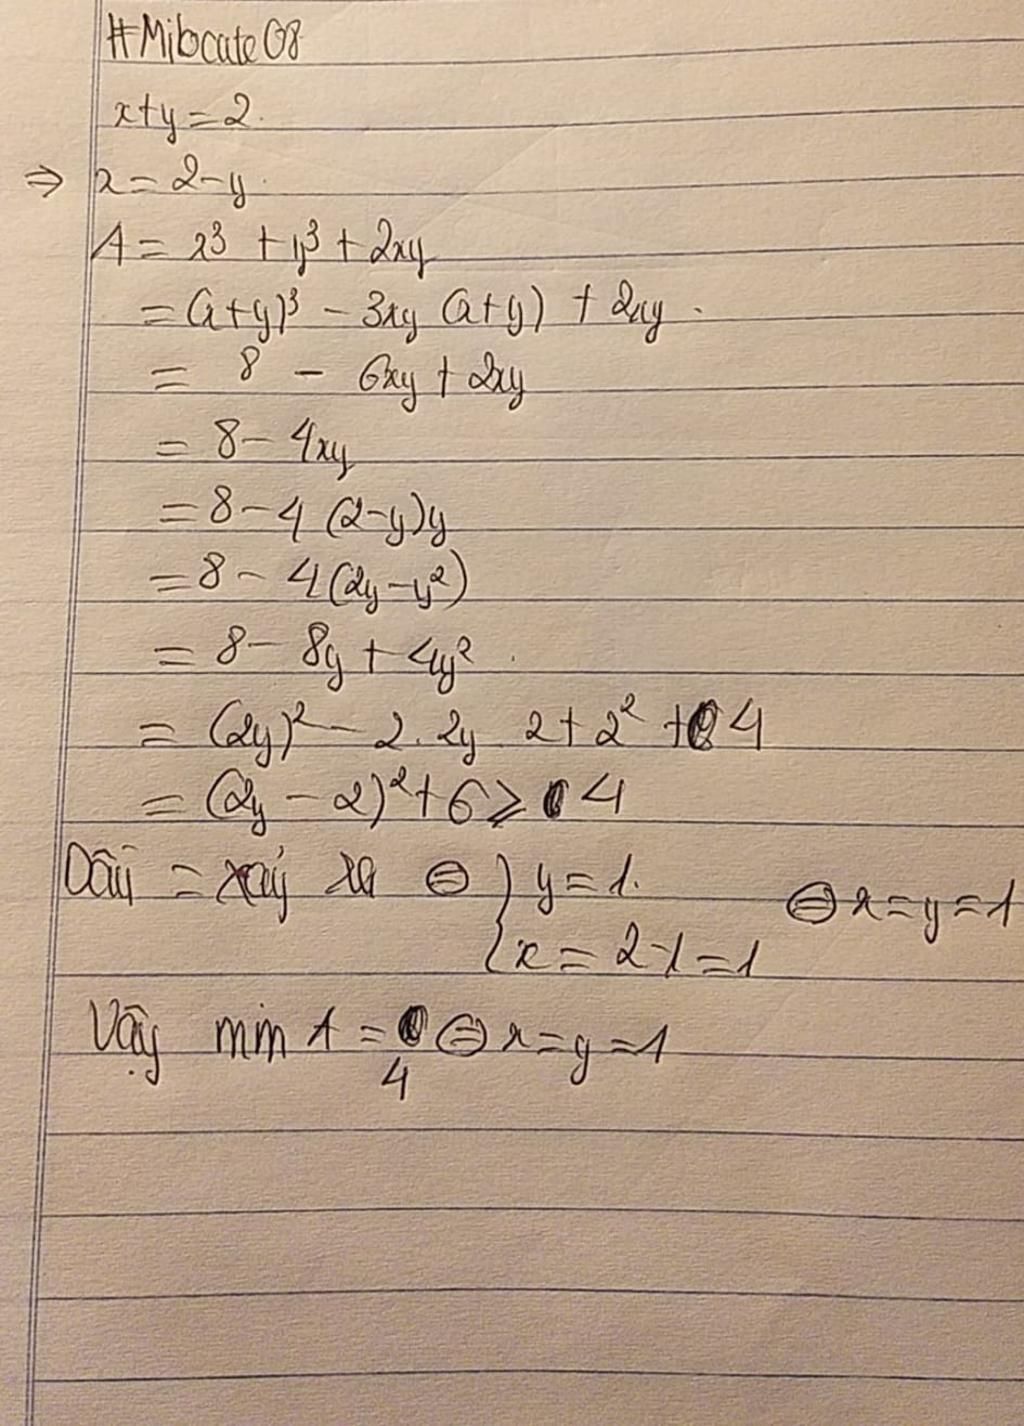 #Mibcate08
x+y=2.
⇒ x=2-y.
A = x³ + y³ + 2xy
= (x+y)³ - 3xy (x+y) + 2xy.
= 8 - 6xy + 2xy
= 8 - 4xy
= 8 - 4 (2-y)y
= 8 - 4(2y-y²)
= 8 - 8y + 4y².
= (2y)² - 2. 2y. 2 + 2² + 4
= (2y - 2)² + 6 ≥ 4
Dấu = xảy ra ⇔ { y = 1. ⇔ x = y = 1
x = 2-1 = 1
Vậy min A = ⇔ x = y = 1
4